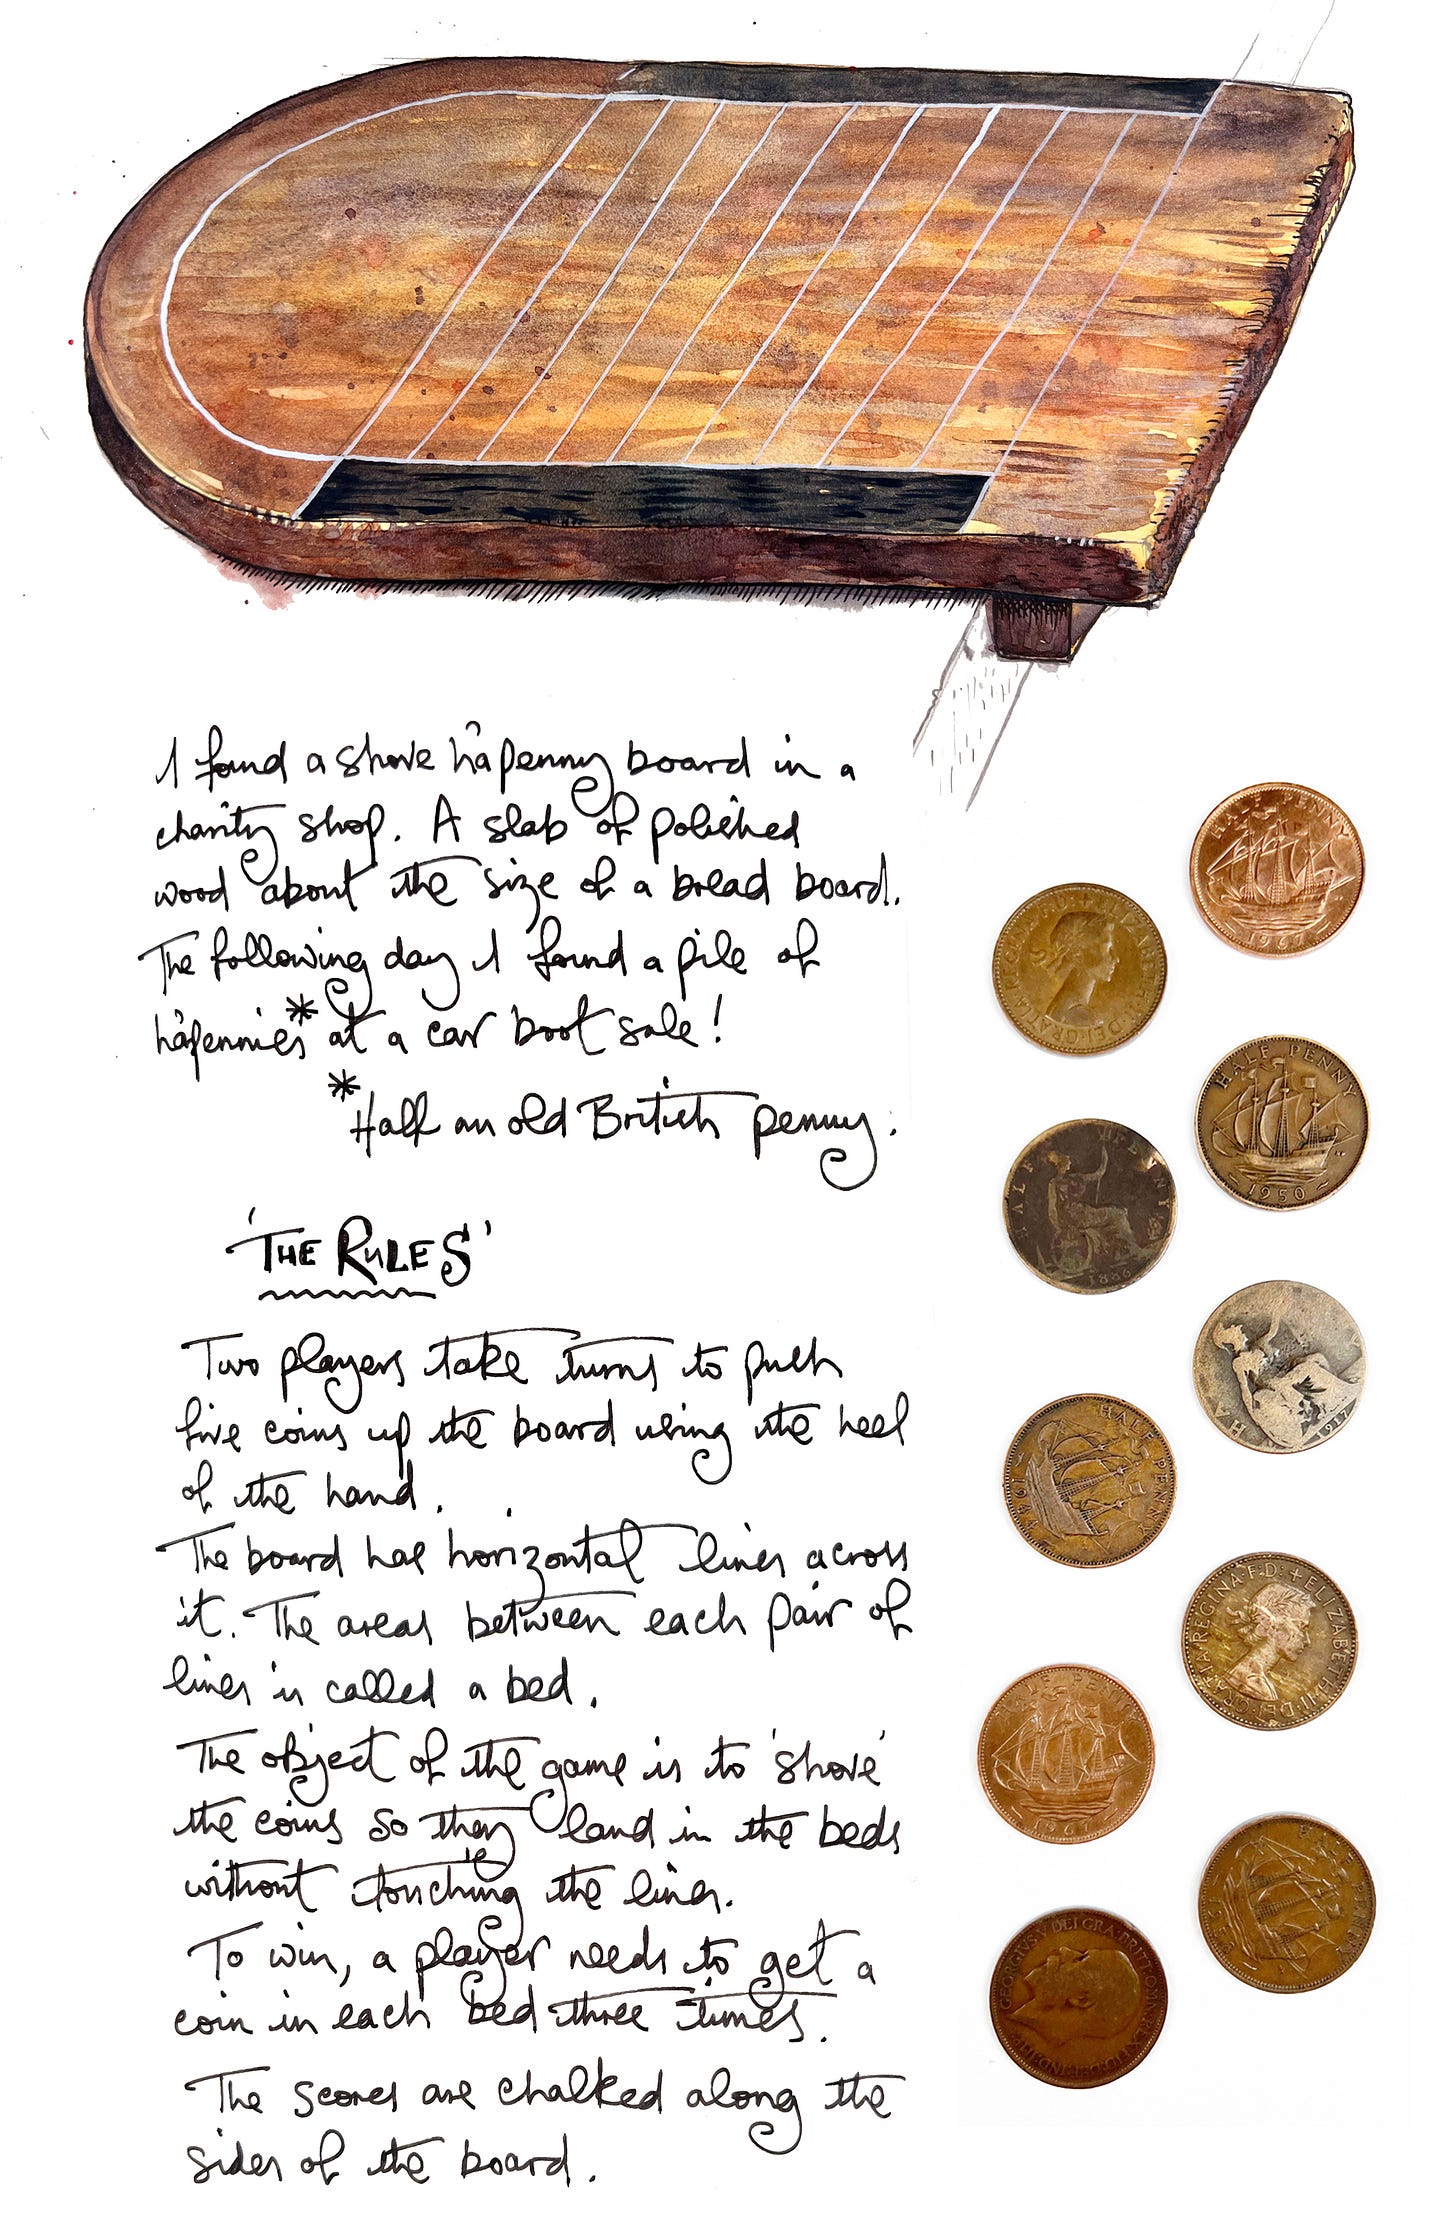 I found a shove ha'penny board in a
charity shop. A slab of polished
wood about the size of a bread board.
The following day I found a pile of
ha'pennies* at a car boot sale!
*Half an old British penny.
'THE RULES'
Two players take turns to push
five coins up the board using the heel
of the hand.
The board has horizontal lines across
it. The areas between each pair of
lines is called a bed.
The object of the game is to 'shove'
the coins so they land in the beds
without touching the lines.
To win, a player needs to get a
coin in each bed three times.
The scores are chalked along the
sides of the board.
HALF PENNY
1967
DEI·GRATIA·REGINA·F:D:+ELIZABETH·II·
HALF PENNY
1950
HALF PENNY
1886
HA
1917
HALF PENNY
1944
DEI·GRATIA·REGINA·F:D:+ELIZABETH·II·
HALF PENNY
1967
HALF PENNY
GEORGIVS V DEI GRA:BRITT:OMN:REX FID:DEF:IND:IMP: